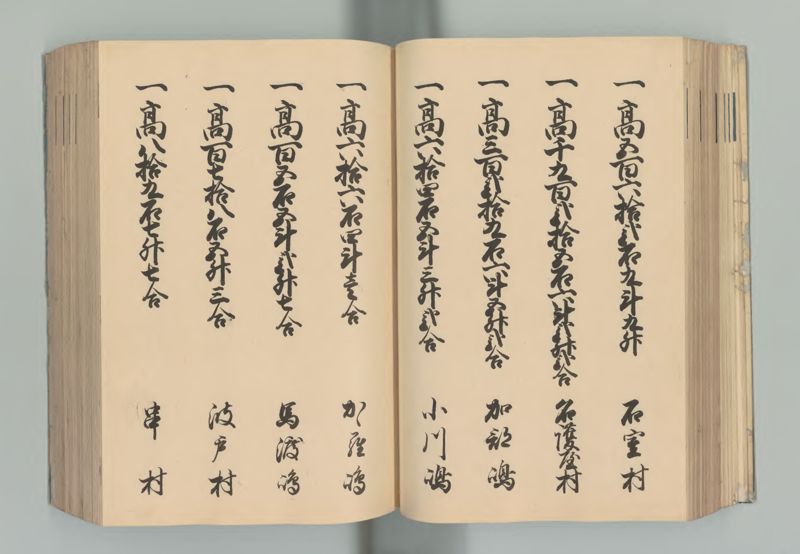 一高五百六拾弐石九斗九升 石室村
一高千九百弐拾五石六斗弐升弐合 名護屋村
一高三百弐拾九石六斗五升弐合 加部嶋
一高六拾四石五斗三升弐合 小川嶋
一高六拾六石四斗壱合 か羅嶋
一高百五石五斗弐升七合 馬渡嶋
一高百七拾八石五升三合 波戸村
一高八拾九石七升七合 串村